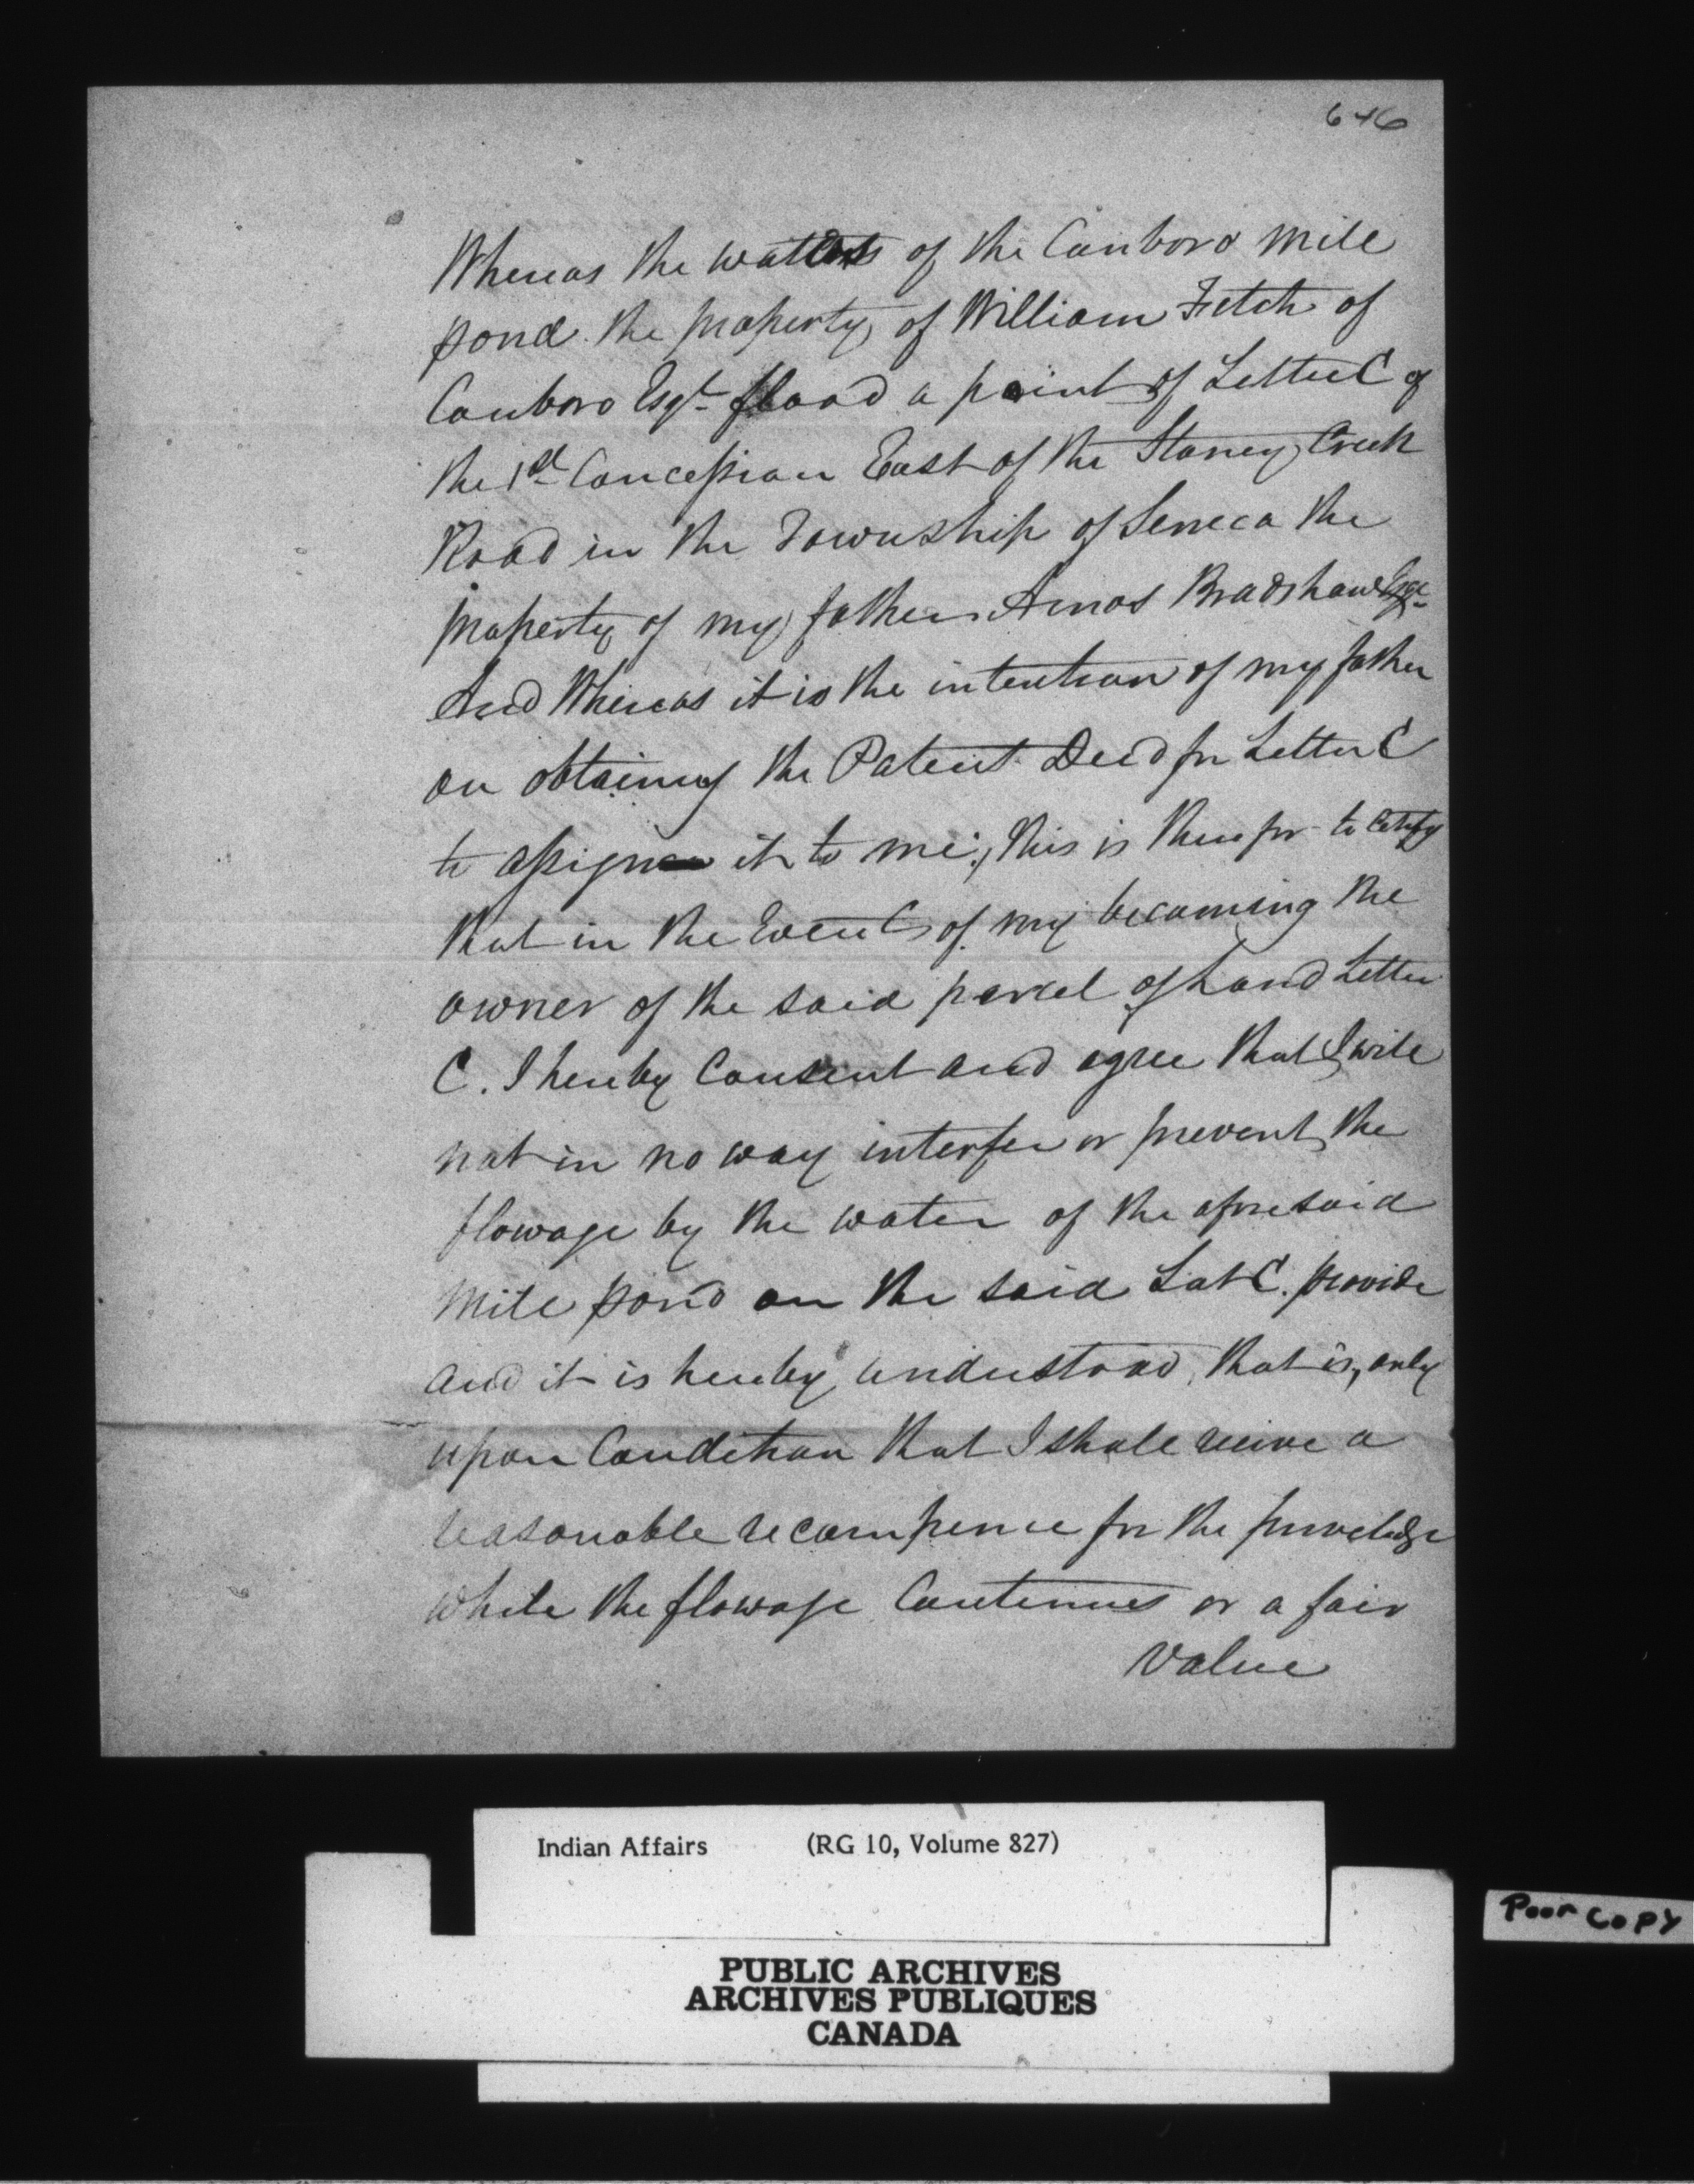 646
Whereas the waters of the Canboro Mill
pond the property of William Fitch of
Canboro Esqr flood a point of Letter C of
the 1st Concession East of the Stoney Creek
Road in the Township of Seneca the
property of my father Amos Bradshaw Esqr
And Whereas it is the intention of my father
on obtaining the Patent Deed for Letter C
to assign it to me, this is therefor to Certify
that in the Event of my becoming the
owner of the said parcel of Land Letter
C. I hereby Consent and agree that I will
not in no way interfer or prevent the
flowage by the water of the aforesaid
Mill pond on the said Lot C. provide
and it is hereby understood, that is, only
upon Condition that I shall receive a
reasonable recompence for the priveledge
while the flowage Continues or a fair
value
Indian Affairs (RG 10, Volume 827)
PUBLIC ARCHIVES
ARCHIVES PUBLIQUES
CANADA
Poor Copy